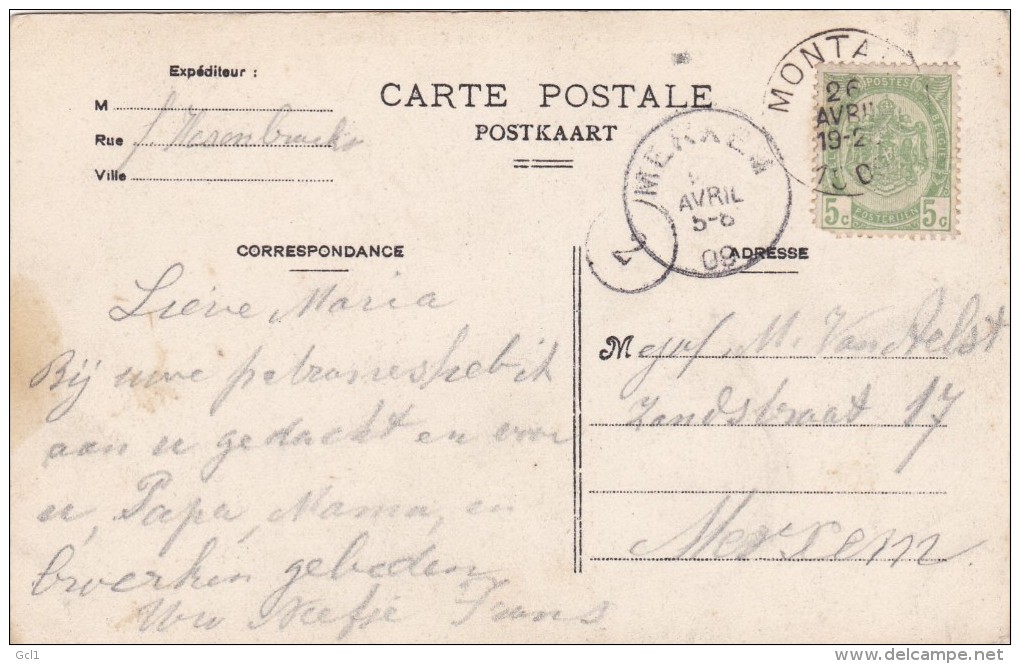 Expéditeur :
M
Rue
Ville
CARTE POSTALE
POSTKAART
MONTA
26
AVRIL
19-2
09
POSTES
BELGIQUE
5c POSTERIJEN 5c
MERXEM
AVRIL
5-6
09
2
CORRESPONDANCE
ADRESSE
Lieve Maria
Bij uwe patrones heb ik
aan u gedacht en voor
u, Papa, Mama, en
broerken gebeden
Uw Neefje Frans
Mejuf. M. Van Aelst
Zandstraat 17
Merxem
Gcl1
delcampe.net